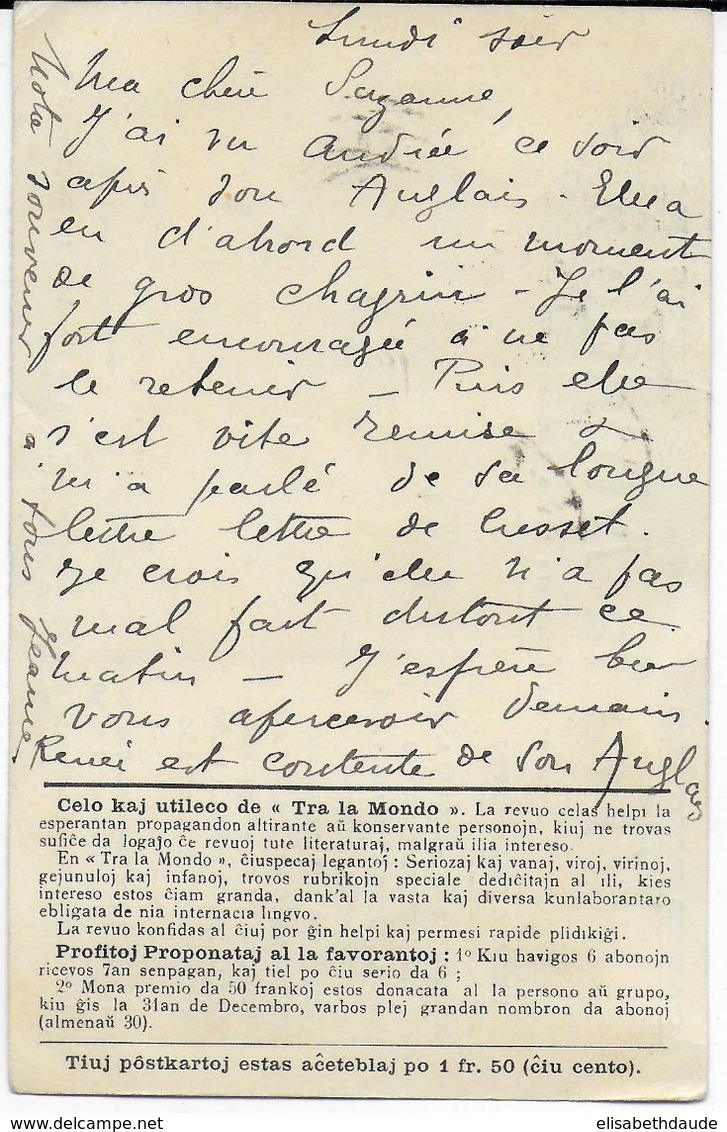 Lundi soir
Ma chère Suzanne,
J'ai vu Andrée ce soir
après son Anglais. Elle a
eu d'abord un moment
de gros chagrin - Je l'ai
fort encouragée à ne pas
le retenir - Puis elle
s'est vite remise &
m'a parlé de sa longue
lettre lettre de Cusset.
Je crois qu'elle n'a pas
mal fait du tout ce
matin - J'espère bien
vous apercevoir demain.
Renée est contente de son Anglais
souvenir à tous Jeanne
Celo kaj utileco de « Tra la Mondo ». La revuo celas helpi la
esperantan propagandon altirante aŭ konservante personojn, kiuj ne trovas
sufiĉe da logaĵo ĉe revuoj tute literaturaj, malgraŭ ilia intereso.
En « Tra la Mondo », ĉiuspecaj legantoj : Seriozaj kaj vanaj, viroj, virinoj,
gejunuloj kaj infanoj, trovos rubrikojn speciale dediĉitajn al ili, kies
intereso estos ĉiam granda, dank'al la vasta kaj diversa kunlaborantaro
ebligata de nia internacia lingvo.
La revuo konfidas al ĉiuj por ĝin helpi kaj permesi rapide plidikiĝi.
Profitoj Proponataj al la favorantoj : 1º Kiu havigos 6 abonojn
ricevos 7an senpagan, kaj tiel po ĉiu serio da 6 ;
2º Mona premio da 50 frankoj estos donacata al la persono aŭ grupo,
kiu ĝis la 31an de Decembro, varbos plej grandan nombron da abonoj
(almenaŭ 30).
Tiuj pôstkartoj estas aĉeteblaj po 1 fr. 50 (ĉiu cento).
elisabethdaude